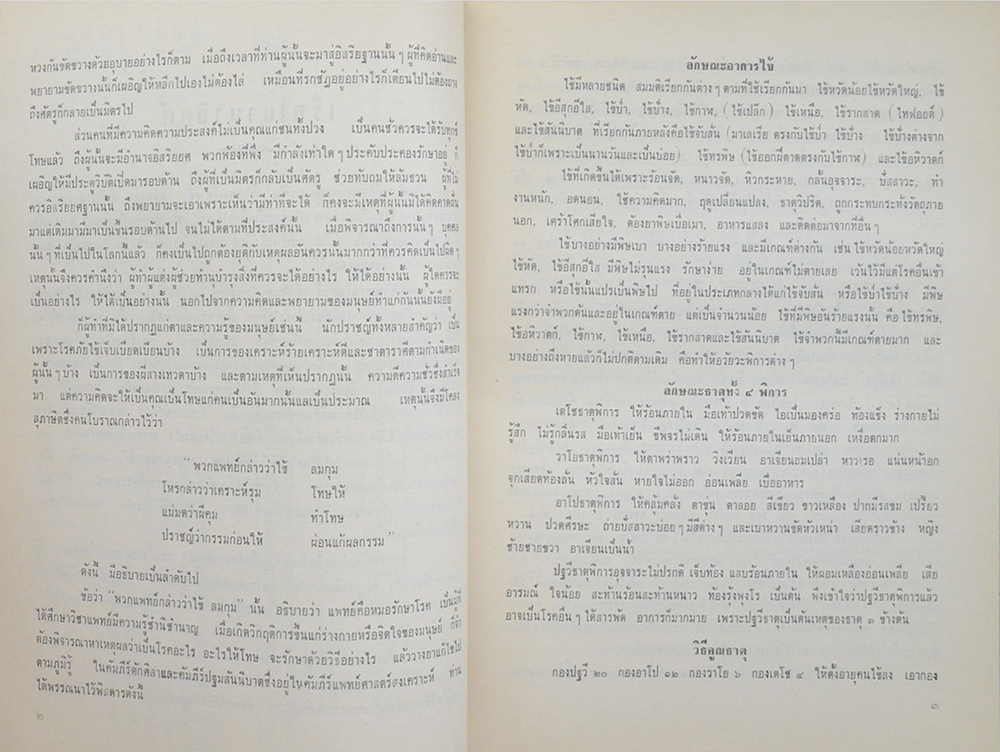 หวงกันขัดขวางด้วยอุบายอย่างไรก็ตาม เมื่อถึงเวลาที่ท่านผู้นั้นจะมาสู่อิสริยฐานนั้น ๆ ผู้ที่คิดอ่านและ
พยายามขัดขวางนั้นก็เผอิญให้หลีกไปเองไม่ต้องไล่ เหมือนที่รกชัฏอยู่อย่างไรก็เตียนไปไม่ต้องถาง
ถึงศัตรูก็กลายเป็นมิตรไป
ส่วนคนที่มีความคิดความประสงค์ไม่เป็นคุณแก่ชนทั้งปวง เป็นคนชั่วควรจะได้รับทุกข์
โทษแล้ว ถึงผู้นั้นจะมีอำนาจอิสริยยศ พวกพ้องที่พึ่ง มีกำลังเท่าใด ๆ ประคับประคองรักษาอยู่ ก็
เผอิญให้มีประตูวิบัติเปิดมารอบด้าน ถึงผู้ที่เป็นมิตรก็กลับเป็นศัตรู ช่วยทับถมให้ล้มชวน ผู้ที่ไม่
ควรอิสริยยศฐานนั้น ถึงพยายามจะเอาเพราะเห็นว่ามีท่าที่จะได้ ก็คงจะมีเหตุที่ผู้นั้นมิได้คิดคาดฝัน
มาแต่เดิมมามีมาเป็นขึ้นรอบด้านไป จนไม่ได้ตามที่ประสงค์นั้น เมื่อพิจารณาถึงการนั้น ๆ บุคคล
นั้น ๆ ที่เป็นไปในโลกนี้แล้ว ก็คงเป็นไปถูกต้องยุติกับเหตุผลอันควรนั้นมากกว่าที่ควรคิดเป็นไปผิด ๆ
เหตุนั้นจึงควรคำนึงว่า ผู้ทำผู้แต่งผู้ช่วยทำนุบำรุงสิ่งที่ควรจะได้อย่างไร ให้ได้อย่างนั้น ผู้ใดควรจะ
เป็นอย่างไร ให้ได้เป็นอย่างนั้น นอกไปจากความคิดและพยายามของมนุษย์ทำแก่กันนั้นยังมีอยู่
ก็ผู้ทำที่มิได้ปรากฏแก่ตาและความรู้ของมนุษย์เช่นนี้ นักปราชญ์ทั้งหลายสำคัญว่า เป็น
เพราะโรคภัยไข้เจ็บเบียดเบียนบ้าง เป็นการของเคราะห์ร้ายเคราะห์ดีและชาตาราศีตามกำเนิดของ
ผู้นั้น ๆ บ้าง เป็นการของผีสางเทวดาบ้าง และตามเหตุที่เห็นปรากฏนั้น ความดีความชั่วซึ่งสำเร็จ
มา แต่ความคิดจะให้เป็นคุณเป็นโทษแก่คนเป็นอันมากนั้นแลเป็นประมาณ เหตุนั้นจึงมีโคลง
สุภาษิตซึ่งคนโบราณกล่าวไว้ว่า
“ พวกแพทย์กล่าวว่าไข้ ลมกุม
โหรกล่าวว่าเคราะห์รุม โทษให้
แม่มดว่าผีคุม ทำโทษ
ปราชญ์ว่ากรรมก่อนให้ ผ่อนแก้ผลกรรม ”
ดังนี้ มีอธิบายเป็นลำดับไป
ข้อว่า “พวกแพทย์กล่าวว่าไข้ ลมกุม” นั้น อธิบายว่า แพทย์คือหมอรักษาโรค เป็นผู้ที่
ได้ศึกษาวิชาแพทย์มีความรู้ชำนิชำนาญ เมื่อเกิดวิกฤติการขึ้นแก่ร่างกายหรือจิตใจของมนุษย์ ก็จำ
ต้องพิจารณาหาเหตุผลว่าเป็นโรคอะไร อะไรให้โทษ จะรักษาด้วยวิธีอย่างไร แล้ววางยาแก้ไขไป
ตามภูมิรู้ ในคัมภีร์ตักศิลาและคัมภีร์ปฐมสันนิบาตซึ่งอยู่ในคัมภีร์แพทย์ศาสตร์สงเคราะห์ ท่าน
ได้พรรณนาไว้พิสดารดังนี้
๒
ลักษณะอาการไข้
ไข้มีหลายชนิด สมมติเรียกกันต่าง ๆ ตามที่ใช้เรียกกันมา ไข้หวัดน้อยไข้หวัดใหญ่, ไข้
หัด, ไข้อีสุกอีใส, ไข้ป่า, ไข้ป่าง, ไข้กาฬ, (ไข้เปลือก) ไข้เหนือ, ไข้รากสาด (ไทฟอยด์)
และไข้สันนิบาต ที่เรียกกันภายหลังคือไข้จับสั่น (มาเลเรีย ตรงกับไข้ป่า ไข้ป่าง ไข้ป่างต่างจาก
ไข้ป่าก็เพราะเป็นนานวันและเป็นบ่อย) ไข้ทรพิษ (ไข้ออกฝีดาดตรงกับไข้กาฬ) และไข้อหิวาตก์
ไข้ที่เกิดขึ้นได้เพราะร้อนจัด, หนาวจัด, หิวกระหาย, กลั้นอุจจาระ, ปัสสาวะ, ทำ
งานหนัก, อดนอน, ใช้ความคิดมาก, ฤดูเปลี่ยนแปลง, ธาตุวิปริต, ถูกกระทบกระทั่งวัตถุภาย
นอก, เศร้าโศกเสียใจ, ต้องยาพิษเบื่อเมา, อาหารแสลง และติดต่อมาจากที่อื่น ๆ
ไข้บางอย่างมีพิษเบา บางอย่างร้ายแรง และมีเกณฑ์ต่างกัน เช่น ไข้หวัดน้อยหวัดใหญ่
ไข้หัด, ไข้อีสุกอีใส มีพิษไม่รุนแรง รักษาง่าย อยู่ในเกณฑ์ไม่ตายเลย เว้นไว้มีแต่โรคอื่นเข้า
แทรก หรือไข้นั้นแปรเป็นพิษไป ที่อยู่ในประเภทกลางได้แก่ไข้จับสั่น หรือไข้ป่าไข้ป่าง มีพิษ
แรงกว่าจำพวกต้นและอยู่ในเกณฑ์ตาย แต่เป็นจำนวนน้อย ไข้ที่มีพิษอันร้ายแรงนั้น คือ ไข้ทรพิษ,
ไข้อหิวาตก์, ไข้กาฬ, ไข้เหนือ, ไข้รากสาดและไข้สันนิบาต ไข้จำพวกนี้มีเกณฑ์ตายมาก และ
บางอย่างถึงหายแล้วก็ไม่ปกติตามเดิม คือทำให้อวัยวะพิการต่าง ๆ
ลักษณะธาตุทั้ง ๔ พิการ
เตโชธาตุพิการ ให้ร้อนภายใน มือเท้าปวดขัด ไอเป็นมองคร่อ ท้องแข็ง ร่างกายไม่
รู้สึก ไม่รู้กลิ่นรส มือเท้าเย็น ชีพจรไม่เดิน ให้ร้อนภายในเย็นภายนอก เหงื่อตกมาก
วาโอธาตุพิการ ให้ตาพร่าพราว วิงเวียน อาเจียนลมเปล่า หาวเรอ แน่นหน้าอก
จุกเสียดท้องลั่น หัวใจสั่น หายใจไม่ออก อ่อนเพลีย เบื่ออาหาร
อาโปธาตุพิการ ให้คลุ้มคลั่ง ตาขุ่น ตาลอย สีเขียว ขาวเหลือง ปากมีรสขม เปรี้ยว
หวาน ปวดศีรษะ ถ่ายปัสสาวะบ่อย ๆ มีสีต่าง ๆ และเบาหวานขัดหัวเหน่า เสียดราวข้าง หญิง
ซ้ายชายขวา อาเจียนเป็นน้ำ
ปฐวีธาตุพิการอุจจาระไม่ปรกติ เจ็บท้อง แสบร้อนภายใน ให้ผอมเหลืองอ่อนเพลีย เสีย
อารมณ์ ใจน้อย สะท้านร้อนสะท้านหนาว ท้องรุ้งพุงโร เป็นต้น พึงเข้าใจว่าปฐวีธาตุพิการแล้ว
อาจเป็นโรคอื่น ๆ ได้สารพัด อาการก็มากมาย เพราะปฐวีธาตุเป็นต้นเหตุของธาตุ ๓ ข้างต้น
วิธีคูณธาตุ
กองปฐวี ๒๐ กองอาโป ๑๒ กองวาโย ๖ กองเตโช ๔ ให้ตั้งอายุคนไข้ลง เอากอง
๓